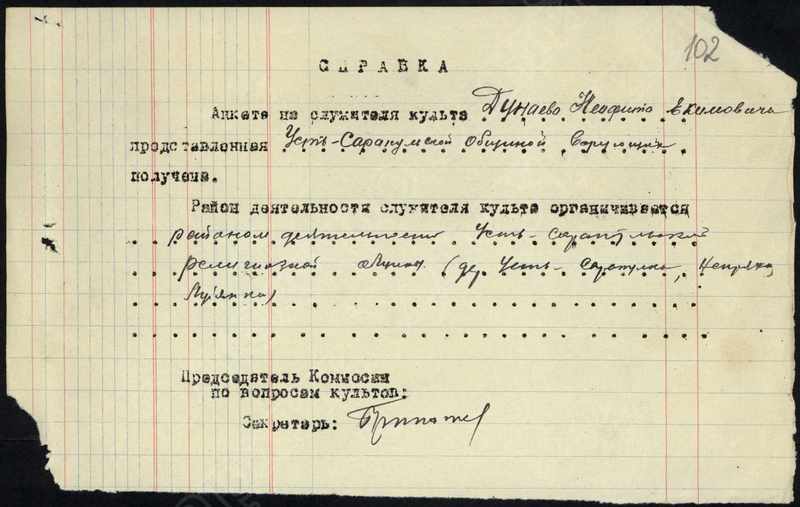 102
СПРАВКА
Анкета на служителя культа Дунаева Неофита Екимовича
представленная Усть-Сарапулской общиной Верующих
получена.
Район деятельности служителя культа органичивается
районом деятельности Усть-Сарапульской
религиозной общины (де Усть-Сарапулка,
Председатель Комиосии
по вопросам культов:
Секретарь: